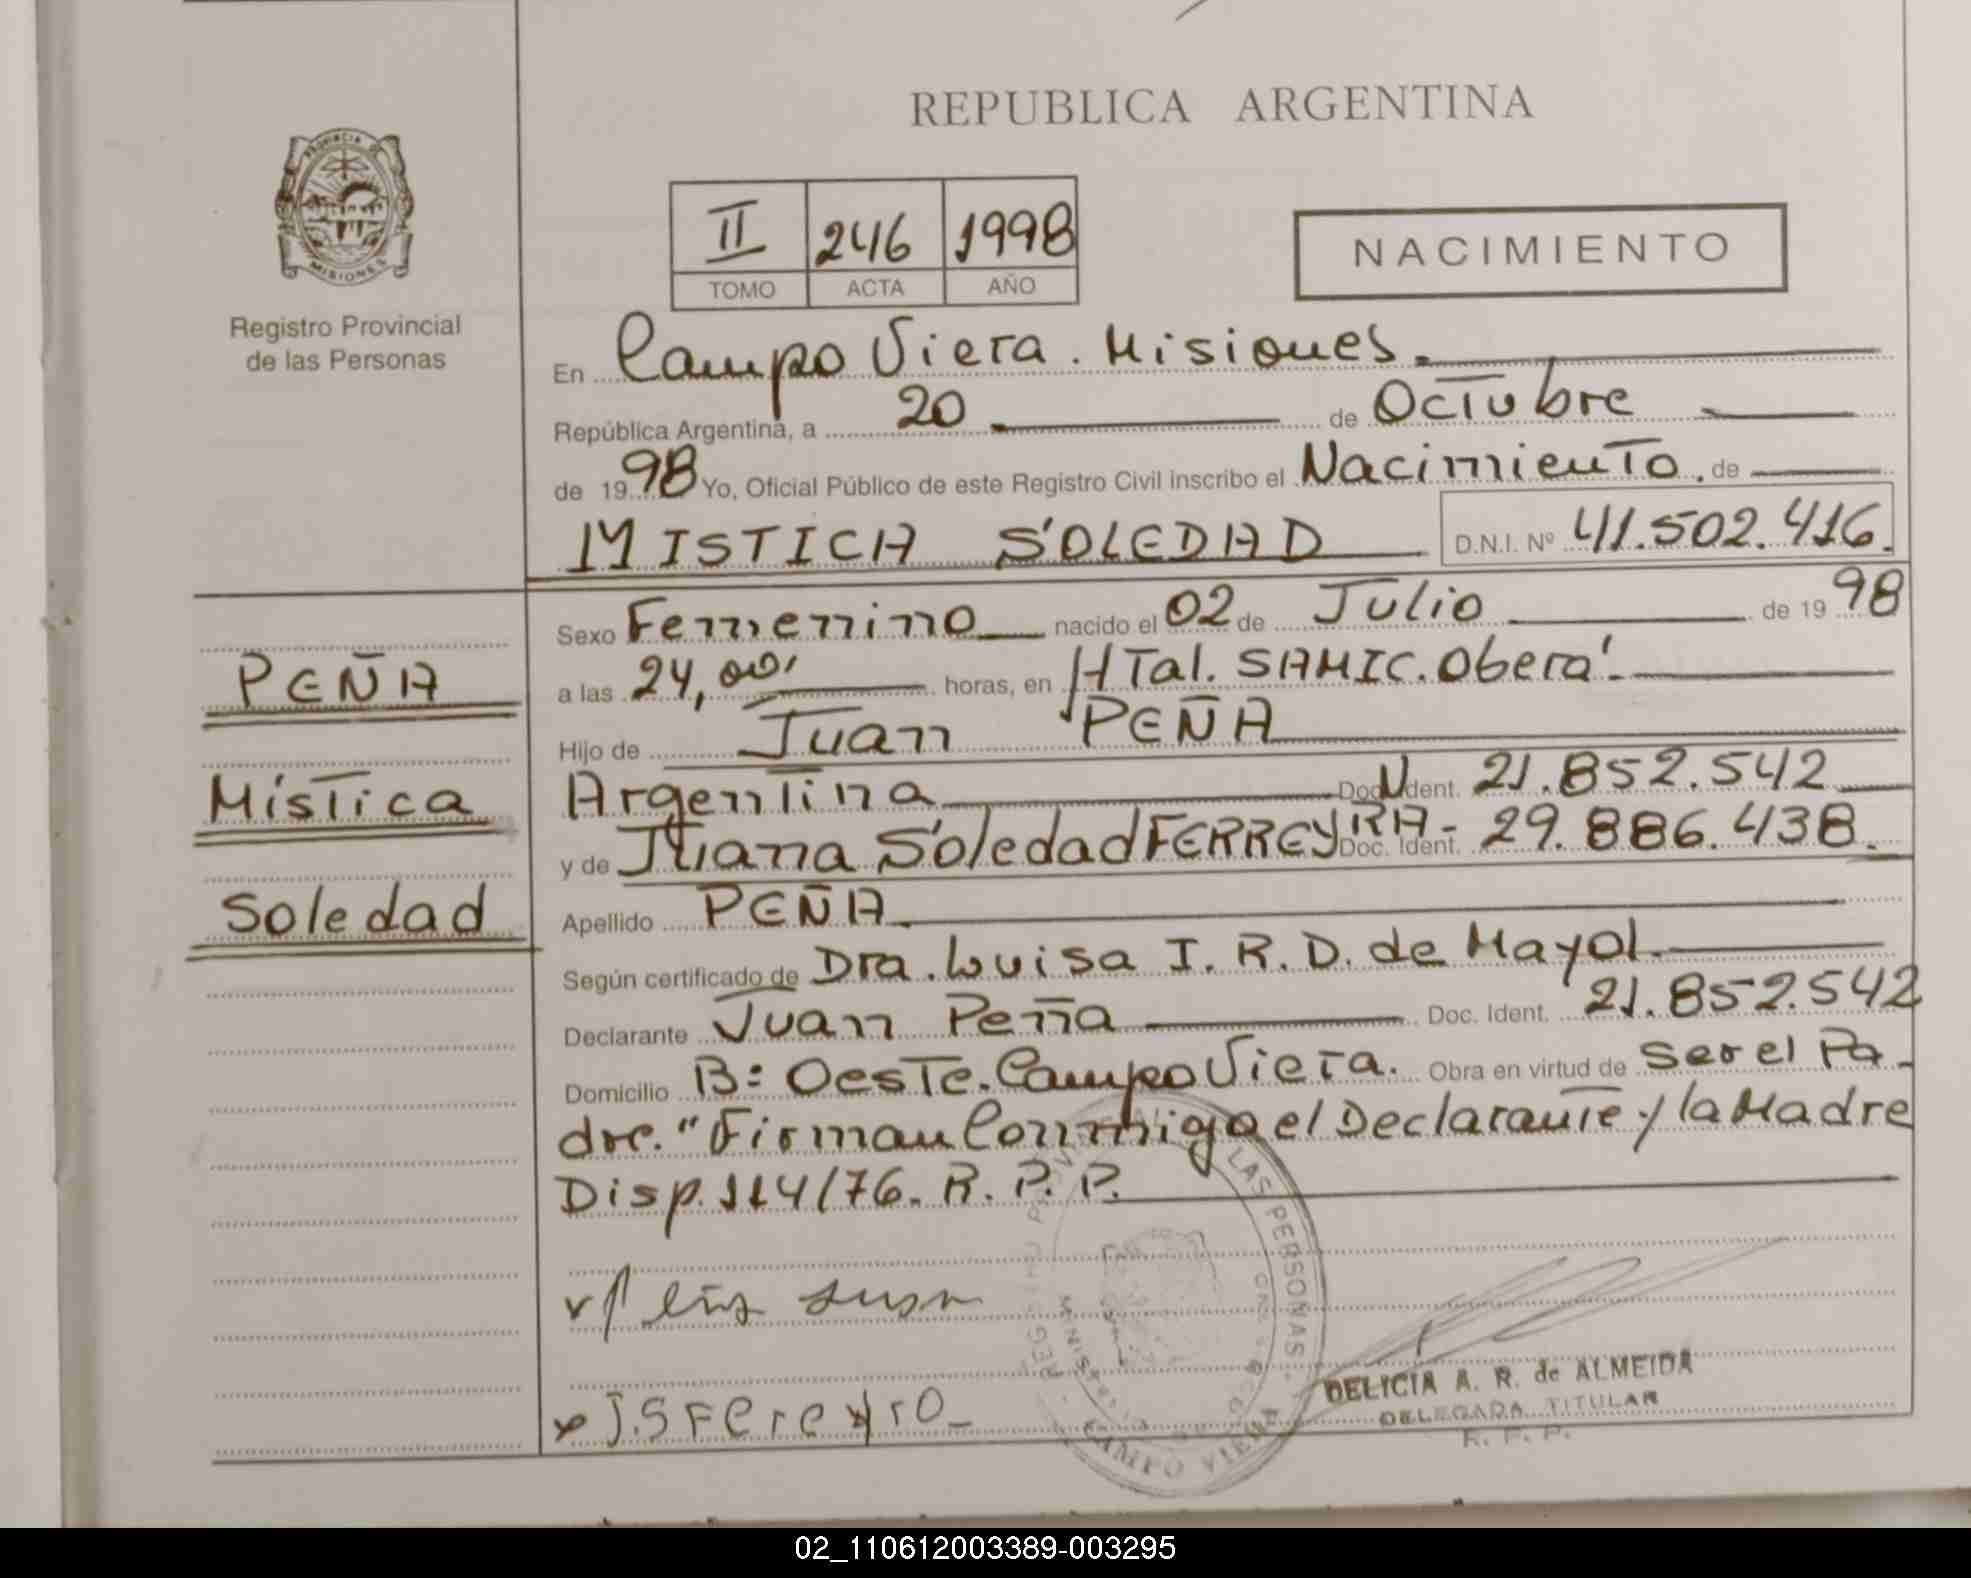 REPUBLICA ARGENTINA
PROVINCIA DE
MISIONES
Registro Provincial
de las Personas
II 246 1998
TOMO ACTA AÑO
NACIMIENTO
En Campo Viera. Misiones.
República Argentina, a 20 de Octubre
de 1998 Yo, Oficial Público de este Registro Civil inscribo el Nacimiento. de
MISTICA SOLEDAD D.N.I. Nº 41.502.416.
PEÑA
Mística
Soledad
Sexo Femenino nacido el 02 de Julio de 1998
a las 24,00' horas, en HTal. SAMIC. Oberá.
Hijo de Juan PEÑA
Argentina Doc. Ident. 21.852.542
y de Juana Soledad FERREYRA- Doc. Ident. 29.886.438.
Apellido PEÑA
Según certificado de Dra. Luisa I. R. D. de Mayol.
Declarante Juan Peña Doc. Ident. 21.852.542
Domicilio B: Oeste. Campo Viera. Obra en virtud de Ser el Pa-
dre. "Firman Conmigo el Declarante y la Madre
Disp. 114/76. R. P. P.
J.S Fereyro
LAS PERSONAS
CAMPO VIERA
DELICIA A. R. de ALMEIDA
DELEGADA TITULAR
R. P. P.
02_110612003389-003295